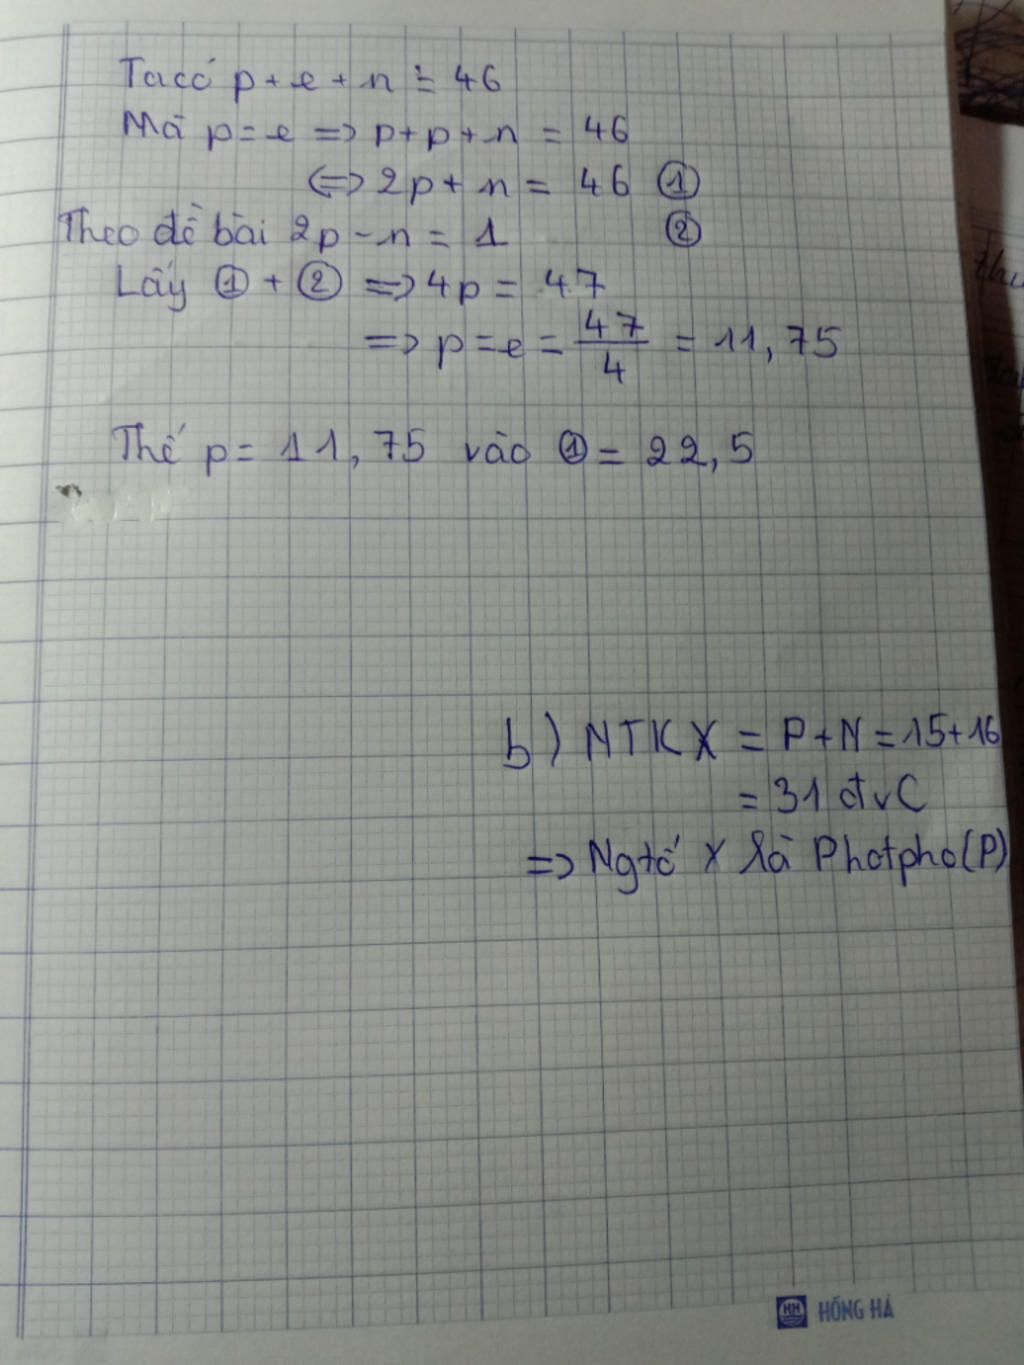 Ta có p + e + n = 46
Mà p = e => p + p + n = 46
<=> 2p + n = 46 ①
Theo đề bài 2p - n = 1 ②
Lấy ① + ② => 4p = 47
=> p = e = 47/4 = 11,75
Thế p = 11,75 vào ① = 22,5
b) NTK X = P + N = 15 + 16
= 31 đvC
=> Ngtố X là Photpho (P)
HH HỒNG HÀ